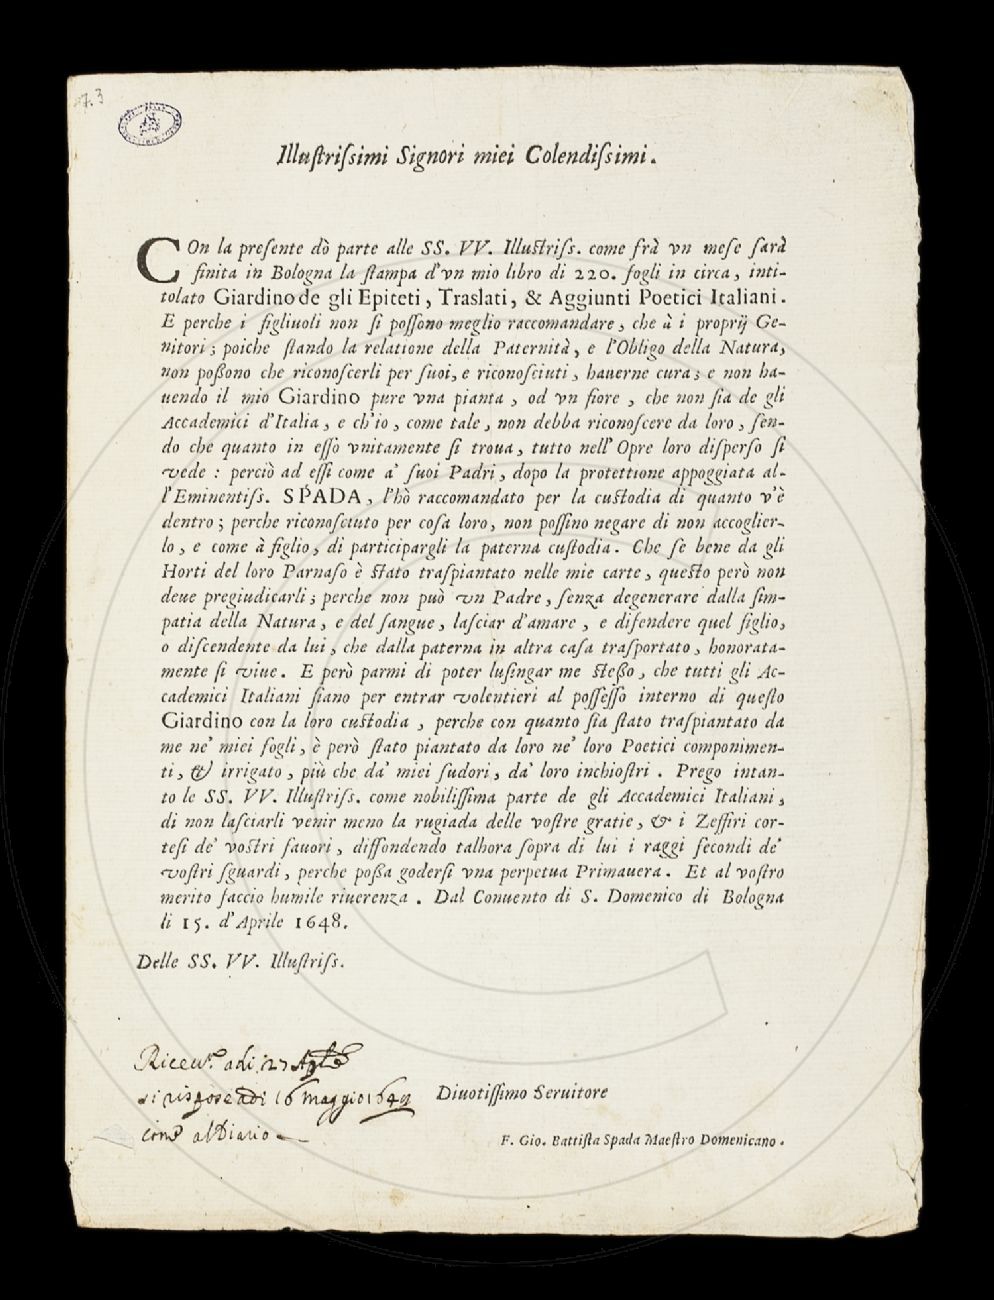 73
Illuſtriſsimi Signori miei Colendiſsimi.
COn la preſente dò parte alle SS. VV. Illuſtriſs. come frà vn meſe ſarà
finita in Bologna la ſtampa d'vn mio libro di 220. fogli in circa, inti-
tolato Giardino de gli Epiteti, Traslati, & Aggiunti Poetici Italiani.
E perche i figliuoli non ſi poſſono meglio raccomandare, che à i proprij Ge-
nitori; poiche ſtando la relatione della Paternità, e l'Obligo della Natura,
non poßono che riconoſcerli per ſuoi, e riconoſciuti, hauerne cura; e non ha-
uendo il mio Giardino pure vna pianta, od vn fiore, che non ſia de gli
Accademici d'Italia, e ch'io, come tale, non debba riconoſcere da loro, ſen-
do che quanto in eſſo vnitamente ſi troua, tutto nell'Opre loro diſperſo ſi
vede: perciò ad eſſi come a' ſuoi Padri, dopo la protettione appoggiata al-
l'Eminentiſs. SPADA, l'hò raccomandato per la cuſtodia di quanto v'è
dentro; perche riconoſciuto per coſa loro, non poſſino negare di non accoglier-
lo, e come à figlio, di participargli la paterna cuſtodia. Che ſe bene da gli
Horti del loro Parnaſo è ſtato traſpiantato nelle mie carte, queſto però non
deue pregiudicarli; perche non può vn Padre, ſenza degenerare dalla ſim-
patia della Natura, e del ſangue, laſciar d'amare, e difendere quel figlio,
o diſcendente da lui, che dalla paterna in altra caſa traſportato, honorata-
mente ſi viue. E però parmi di poter luſingar me ſteßo, che tutti gli Ac-
cademici Italiani ſiano per entrar volentieri al poſſeſſo interno di queſto
Giardino con la loro cuſtodia, perche con quanto ſia ſtato traſpiantato da
me ne' miei fogli, è però ſtato piantato da loro ne' loro Poetici componimen-
ti, & irrigato, più che da' miei ſudori, da' loro inchioſtri. Prego intan-
to le SS. VV. Illuſtriſs. come nobiliſſima parte de gli Accademici Italiani,
di non laſciarli venir meno la rugiada delle voſtre gratie, & i Zeffiri cor-
teſi de' voſtri fauori, diffondendo talhora ſopra di lui i raggi fecondi de'
voſtri ſguardi, perche poßa goderſi vna perpetua Primauera. Et al voſtro
merito faccio humile riuerenza. Dal Conuento di S. Domenico di Bologna
li 15. d'Aprile 1648.
Delle SS. VV. Illuſtriſs.
Riceu.ta adi 27 Aple
si rispose adi 16 maggio 1648
come al Diario
Diuotiſſimo Seruitore
F. Gio. Battiſta Spada Maeſtro Domenicano.